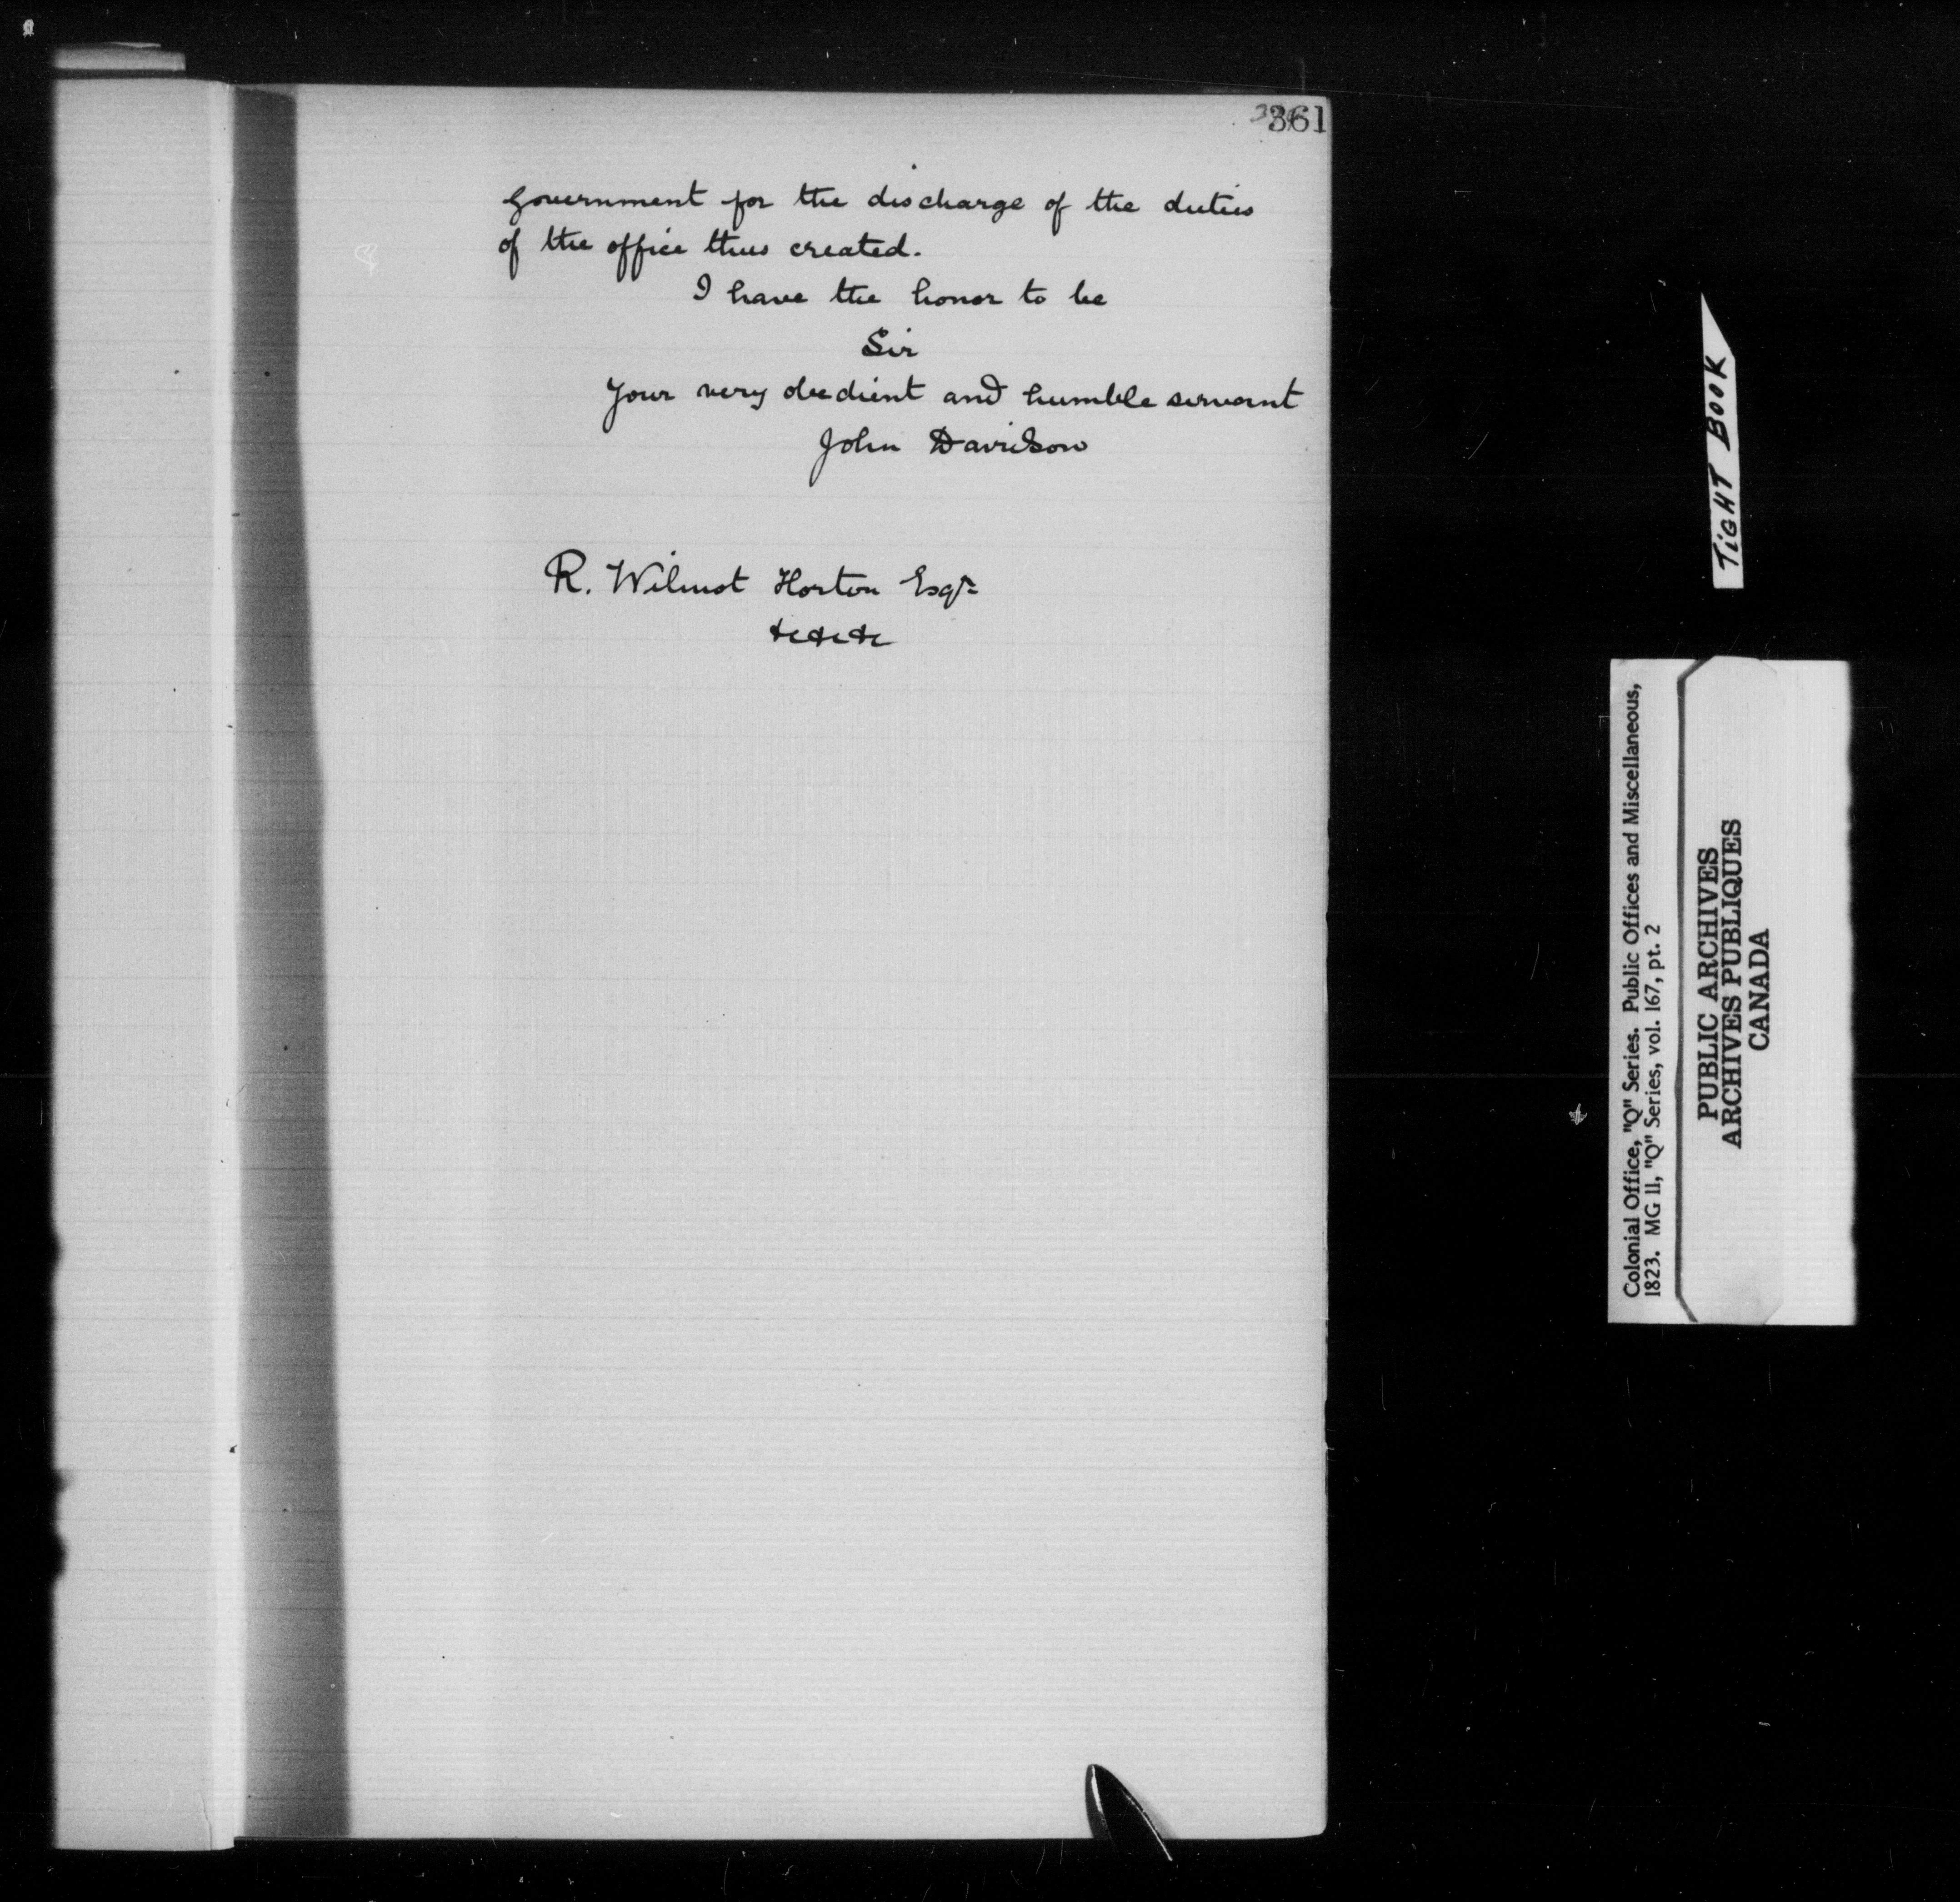 361
government for the discharge of the duties
of the office thus created.
I have the honor to be
Sir
Your very obedient and humble servant
John Davidson
R. Wilmot Horton Esqr.
&c &c &c
TIGHT BOOK
Colonial Office, "Q" Series. Public Offices and Miscellaneous,
1823. MG 11, "Q" Series, vol. 167, pt. 2
PUBLIC ARCHIVES
ARCHIVES PUBLIQUES
CANADA